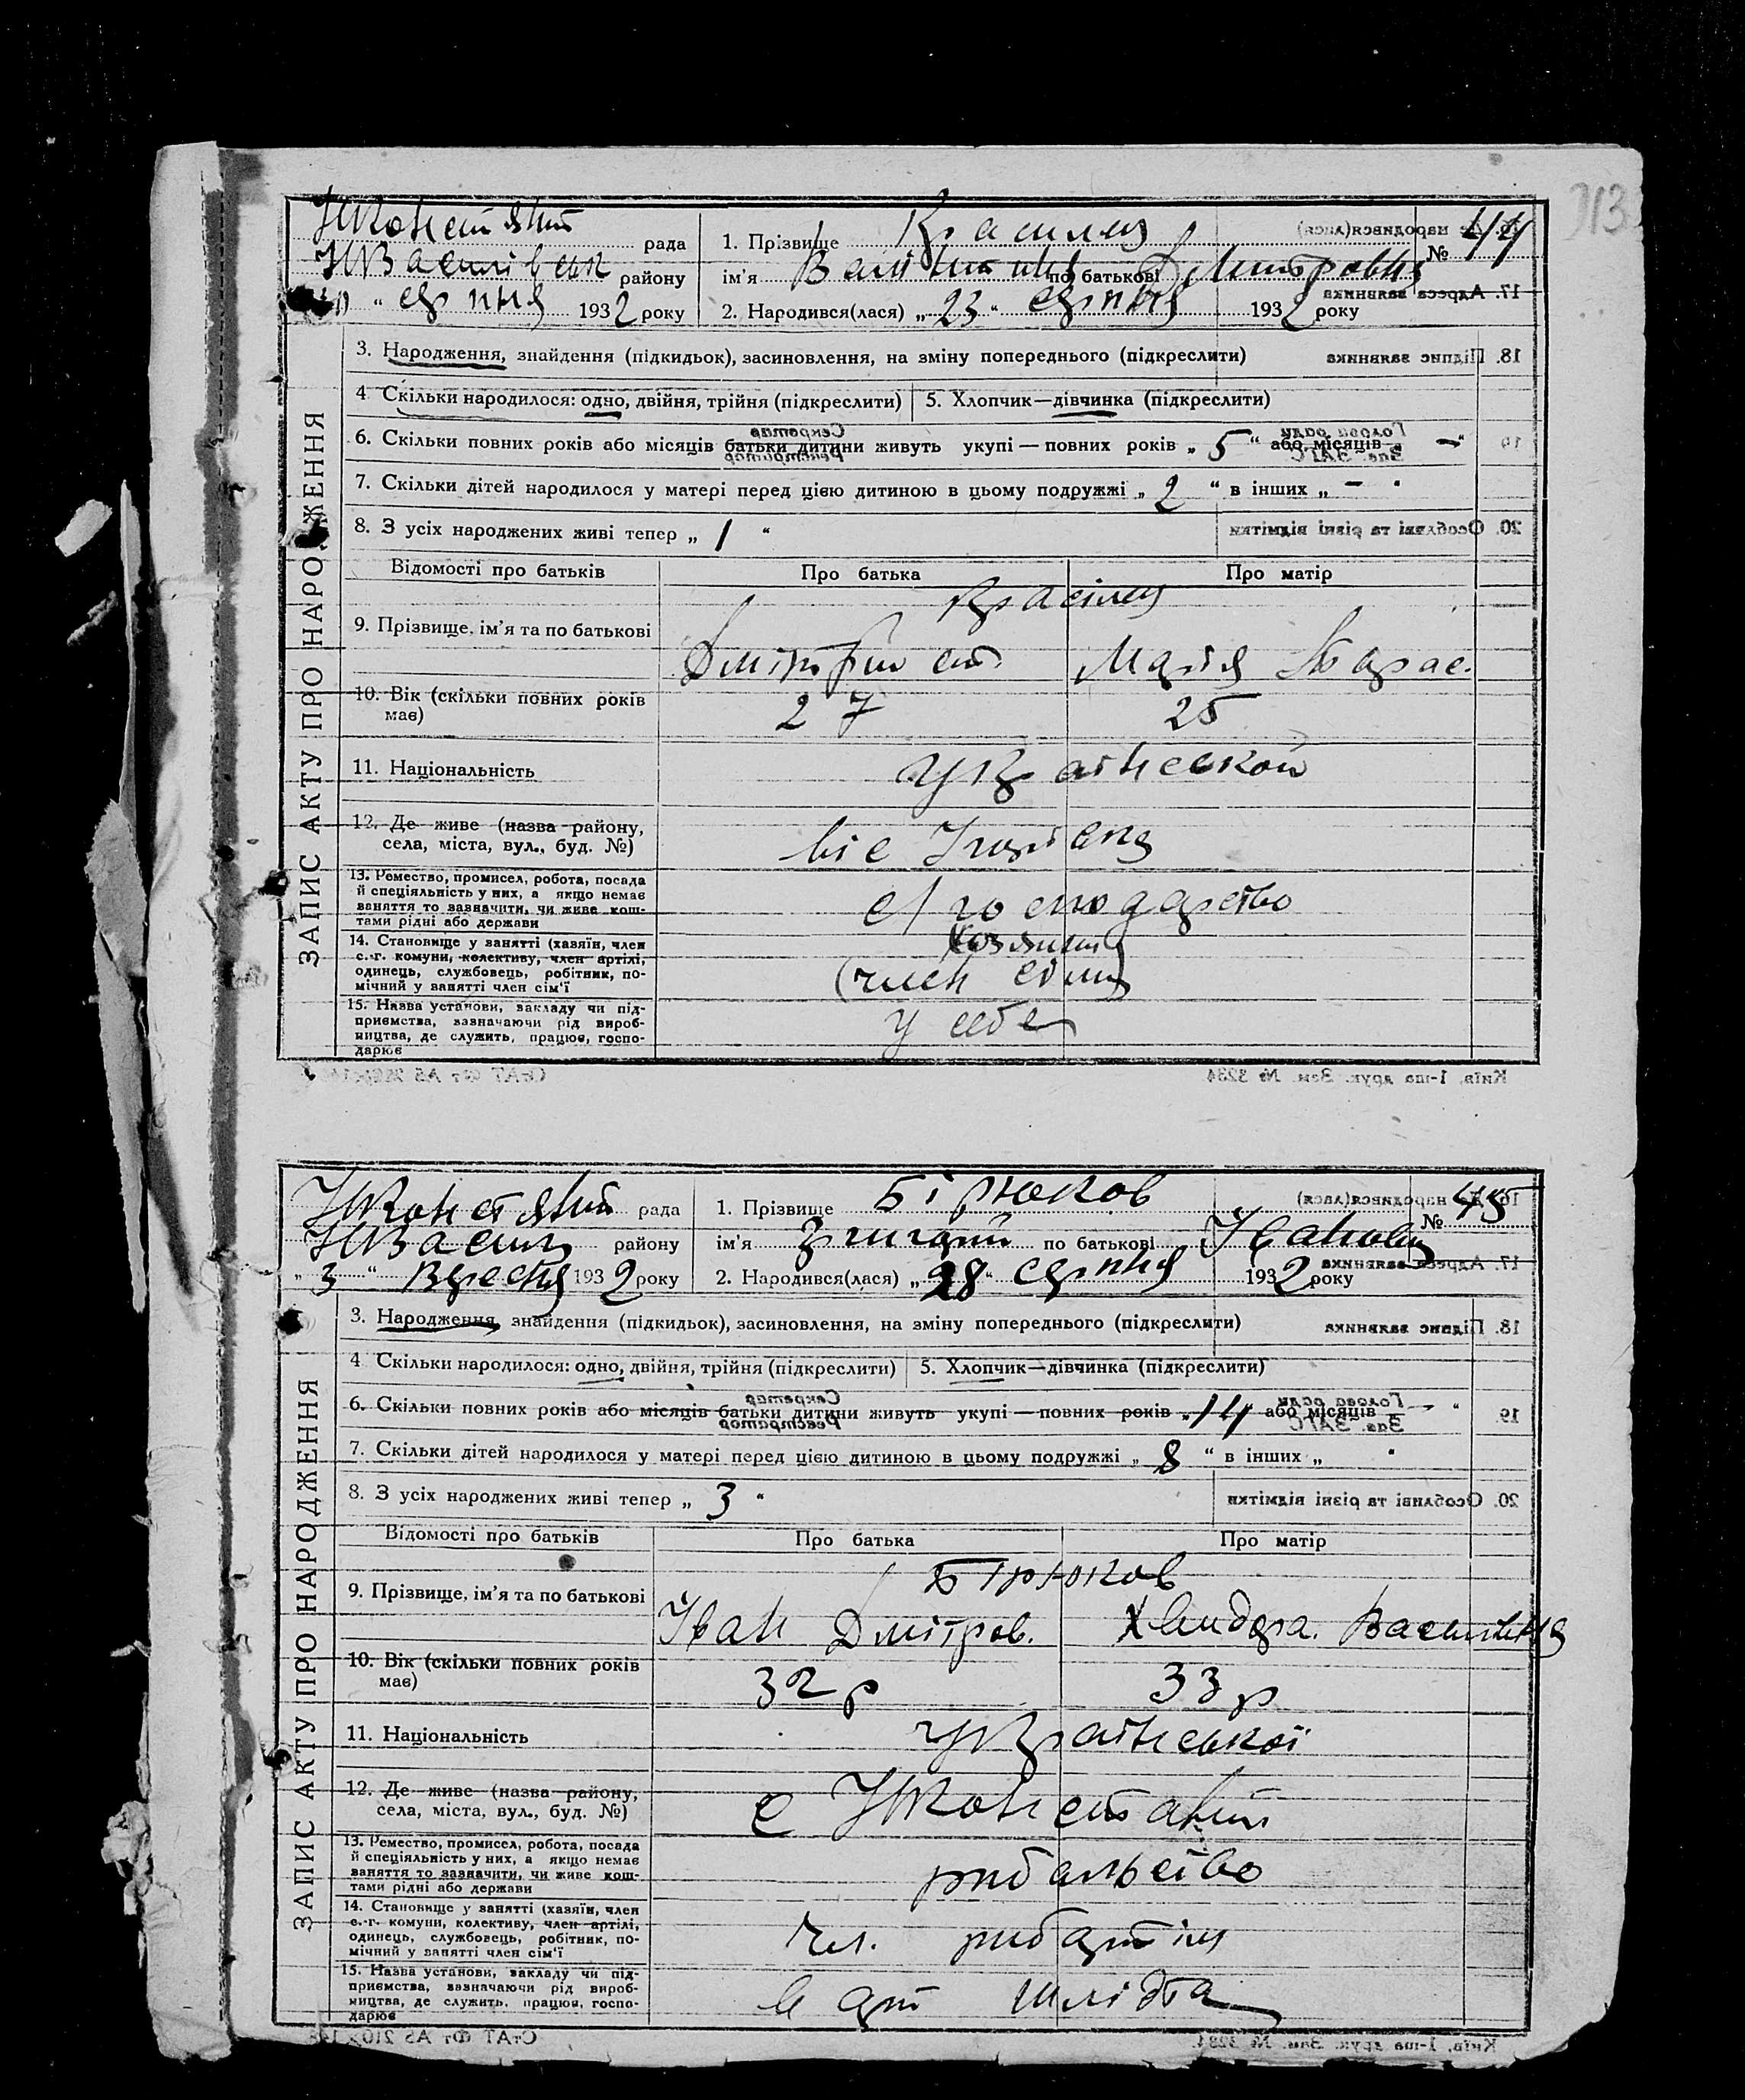 313
рада
1. Прізвище
№ 44
району
ім'я Валінтина по батькові Дмитровна
серпня 1932 року
2. Народився(лася) „ 23 “ серпня 1932 року
ЗАПИС АКТУ ПРО НАРОДЖЕННЯ
3. Народження, знайдення (підкидьок), засиновлення, на зміну попереднього (підкреслити)
4 Скільки народилося: одно, двійня, трійня (підкреслити)
5. Хлопчик—дівчинка (підкреслити)
6. Скільки повних років або місяців батьки дитини живуть укупі — повних років „ 5 “ або місяців „ — “
7. Скільки дітей народилося у матері перед цією дитиною в цьому подружжі „ 2 “ в інших „ — “
8. З усіх народжених живі тепер „ 1 “
Відомості про батьків
Про батька
Про матір
9. Прізвище, ім'я та по батькові
Дмітрий
Марія Тарас.
10. Вік (скільки повних років
має)
27
25
11. Національність
12. Де живе (назва району,
села, міста, вул., буд. №)
13. Ремество, промисел, робота, посада
й спеціяльність у них, а якщо немає
заняття то зазначити, чи живе кош-
тами рідні або держави
с/господарство
14. Становище у занятті (хазяїн, член
с.-г. комуни, колективу, член артілі,
одинець, службовець, робітник, по-
мічний у занятті член сім'ї
(член сѳмї)
15. Назва установи, закладу чи під-
приємства, зазначаючи рід вироб-
ництва, де служить, працює, госпо-
дарює
у себе
СтАТ Фт А5
Київ, 1-ша друк. Зам. № 3234
рада
1. Прізвище Бірюков
№ 45
району
ім'я Григорий по батькові Іванович
„ 3 “ Вересня 1932 року
2. Народився(лася) „ 28 “ серпня 1932 року
ЗАПИС АКТУ ПРО НАРОДЖЕННЯ
3. Народження, знайдення (підкидьок), засиновлення, на зміну попереднього (підкреслити)
4 Скільки народилося: одно, двійня, трійня (підкреслити)
5. Хлопчик—дівчинка (підкреслити)
6. Скільки повних років або місяців батьки дитини живуть укупі — повних років „ 14 або місяців — “
7. Скільки дітей народилося у матері перед цією дитиною в цьому подружжі „ 8 “ в інших „ “
8. З усіх народжених живі тепер „ 3 “
Відомості про батьків
Про батька
Про матір
9. Прізвище, ім'я та по батькові
Бірюков
Іван Дмітров.
10. Вік (скільки повних років
має)
32 р
33 р
11. Національність
Української
12. Де живе (назва району,
села, міста, вул., буд. №)
13. Ремество, промисел, робота, посада
й спеціяльність у них, а якщо немає
заняття то зазначити, чи живе кош-
тами рідні або держави
рибальство
14. Становище у занятті (хазяїн, член
с.-г. комуни, колективу, член артілі,
одинець, службовець, робітник, по-
мічний у занятті член сім'ї
Чл. рибартілі
15. Назва установи, закладу чи під-
приємства, зазначаючи рід вироб-
ництва, де служить, працює, госпо-
дарює
в арт Шмідта
СтАТ Фт А5
Київ, 1-ша друк. Зам. № 3234